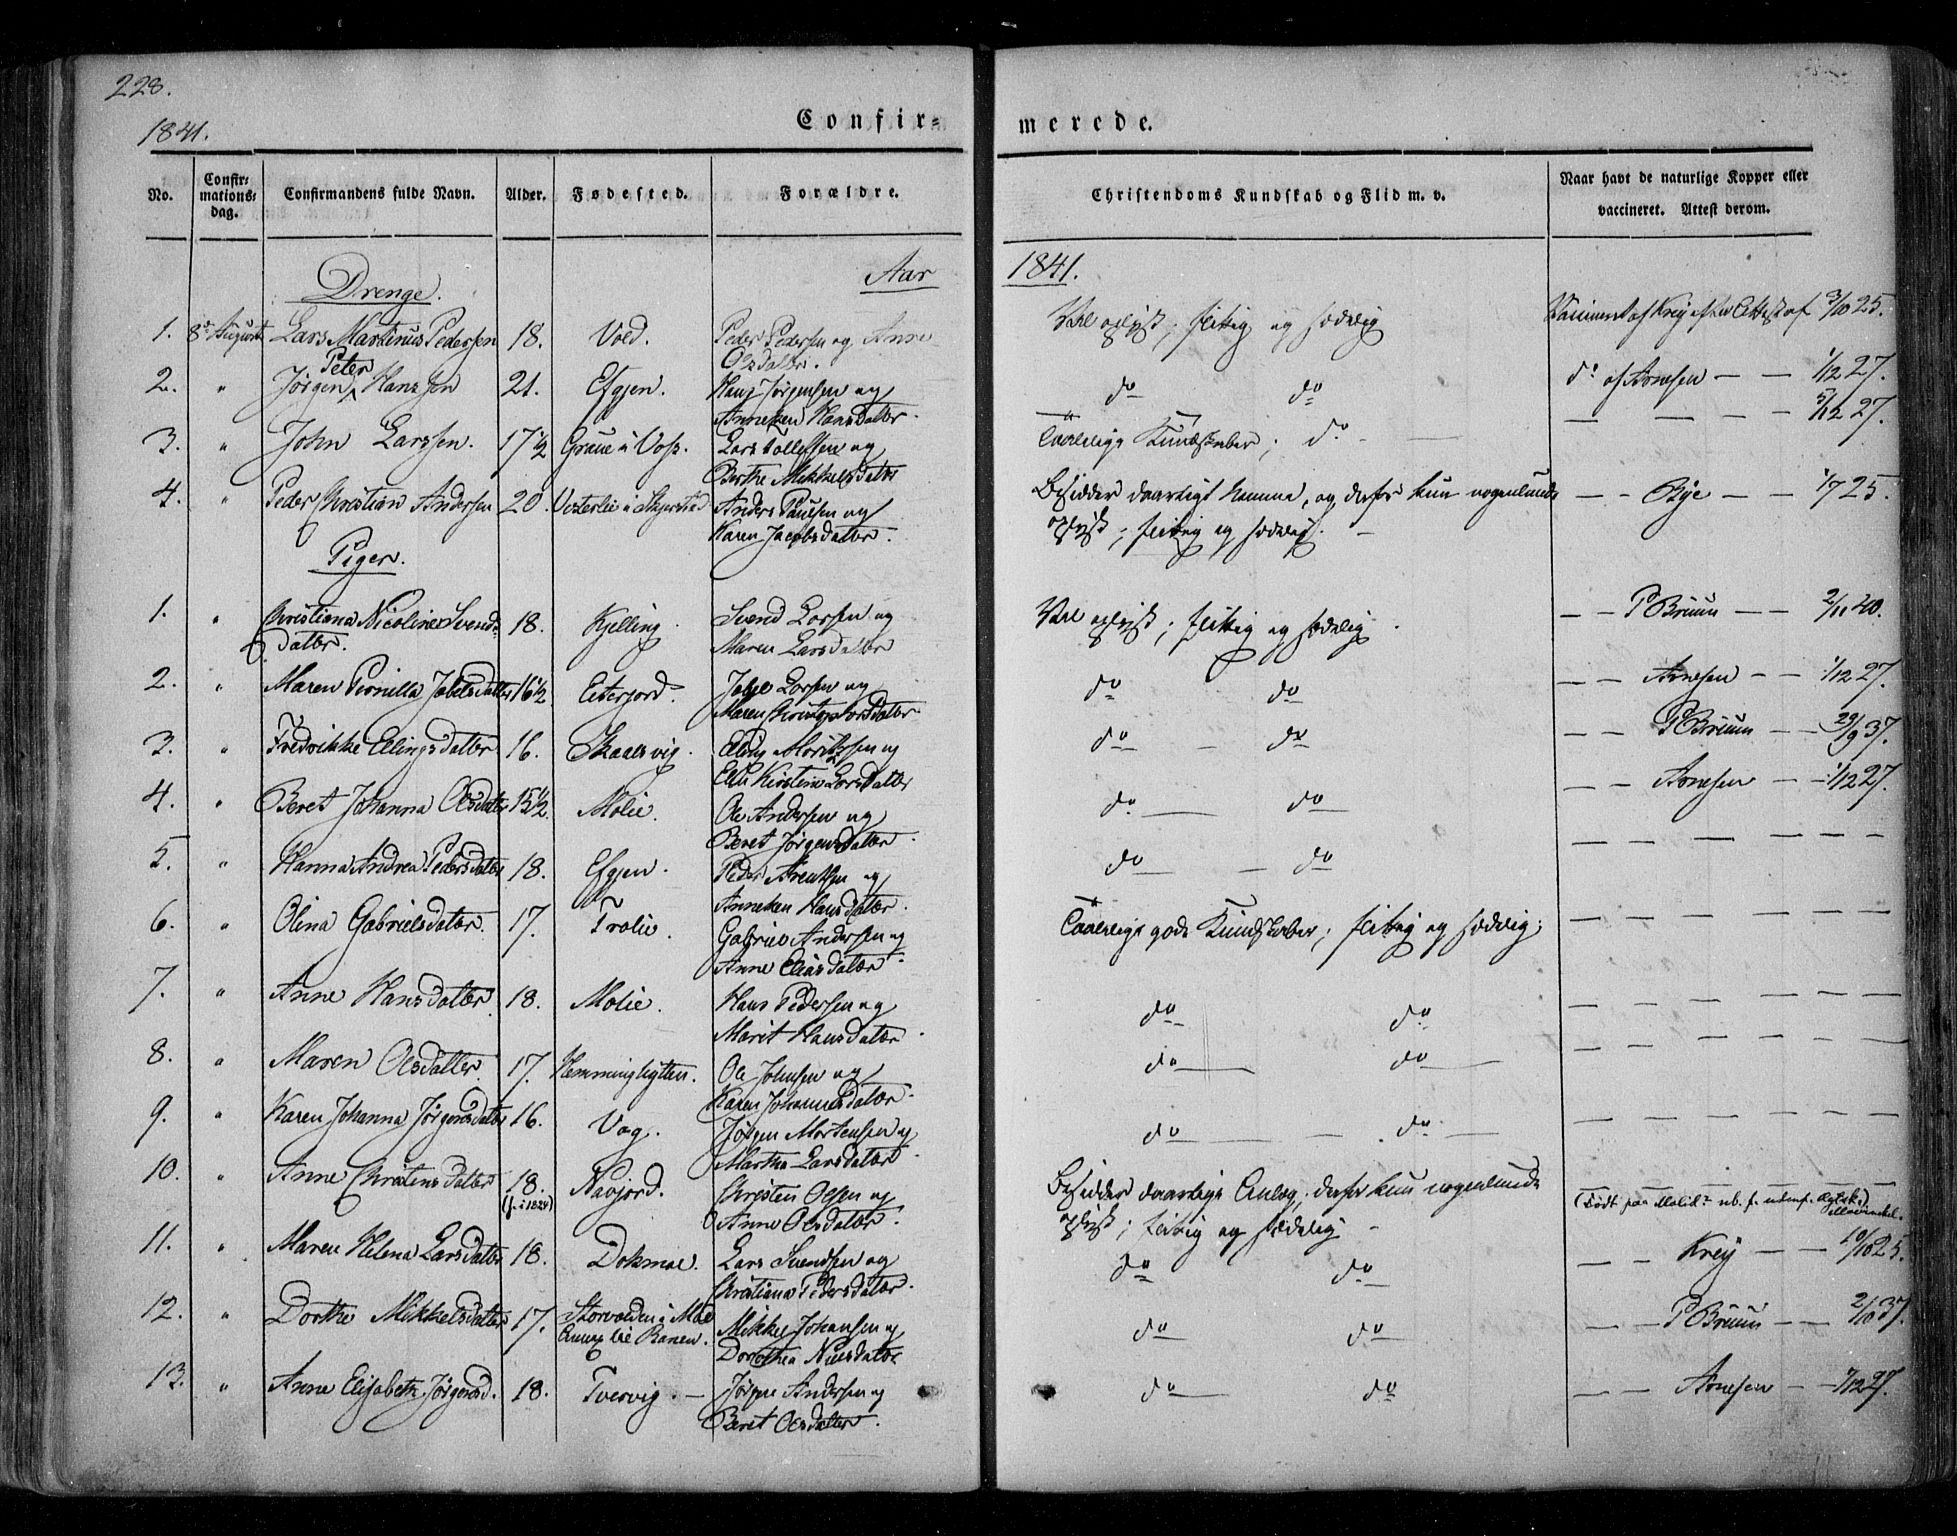 228.
1841.
Confirmerede.
No. Confirmationsdag. Confirmandens fulde Navn. Alder. Fødested. Forældre. Christendoms Kundskab og Flid m. v. Naar havt de naturlige Kopper eller vaccineret. Attest derom.
Aar 1841.
Drenge.
1. 8de August Lars Martinus Pedersen 18. Vold. Peder Pedersen og Anne Vel oplyst; flittig og sædelig Vaccineret af Krey efter Attest af 3/10 25.
Olsdatter.
2. " Jørgen Peter Hanssen 21. Efgjen. Hans Jørgensen og do do do af Arnesen — — 1/12 27.
Anneken Hansdatter.
3. " John Larssen. 17 1/2 Graue i Voss. Lars Tollefsen og Taalelige Kundskaber; do — — — 5/12 27.
Berthe Mikkelsdatter
4. " Peder Christian Andersen 20. Vesterlie i Skjerstad Anders Paulsen og Besidder daarligt Nemme, og derfor kun nogenlunde — — Rye — — 1/7 25.
Karen Jacobsdatter. oplyst; flittig og sædelig.
Piger.
1. " Christiana Nicoline Svends- 18. Kjelling. Svend Larsen og Vel oplyst; flittig og sædelig. — — P Bruun — — 2/11 40.
datter. Maren Larsdatter
2. " Maren Pernilla Jabelsdatter 16 1/2 Eiterjord. Jabel Larsen og do do — — Arnesen — — 1/12 27.
Maren Larsdatter
3. " Fredrikke Ellingsdatter 16. Skaalsvig. Elling Moritzsen og do — do — — P Bruun — — 29/9 37.
Elen Kirstine Larsdatter
4. " Beret Johanna Olsdatter 15 1/2. Molie. Ole Andersen og do — do — — Arnesen — — 1/12 27.
Beret Jørgensdatter.
5. " Hanna Andrea Pedersdatter 18. Efgjen. Peder Arentsen og do — do — — — — —
Anneken Hansdatter.
6. " Olina Gabrielsdatter 17. Trolie. Gabriel Andersen og Taalelige gode Kundskaber; flittig og sædelig; — — — — —
Anne Eliasdatter
7. " Anne Hansdatter 18. Molie. Hans Pedersen og do do — — — — —
Marit Hansdatter.
8. " Maren Olsdatter 17. Hemminghytten. Ole Johnsen og do do — — — — —
Karen Johannesdatter.
9. " Karen Johanna Jørgensdatter 16. Vag. Jørgen Mortensen og do — do — — — — —
Martha Larsdatter.
10. " Anne Christensdatter 18. Navjord. Christen Olsen og Besidder daarlige Anlæg, derfor kun nogenlunde — — — — —
(f. i 1823) Anne Olsdatter. oplyst; flittig og sædelig —
11. " Maren Helena Larsdatter 18. Dokmoe. Lars Svendsen og do do — — Krey — — 10/10 25.
Christiana Pedersdatter.
12. " Dorthe Mikkelsdatter 17. Storvolden i Moe Mikkel Johansen og do do — — P Bruun — — 2/10 37.
Annex til Ranen. Dorothea Nielsdatter
13. " Anne Elisabeth Jørgensd. 18. Tvervig. — Jørgen Andersen og do — do — — Arnesen — 7/12 27.
Beret Olsdatter.